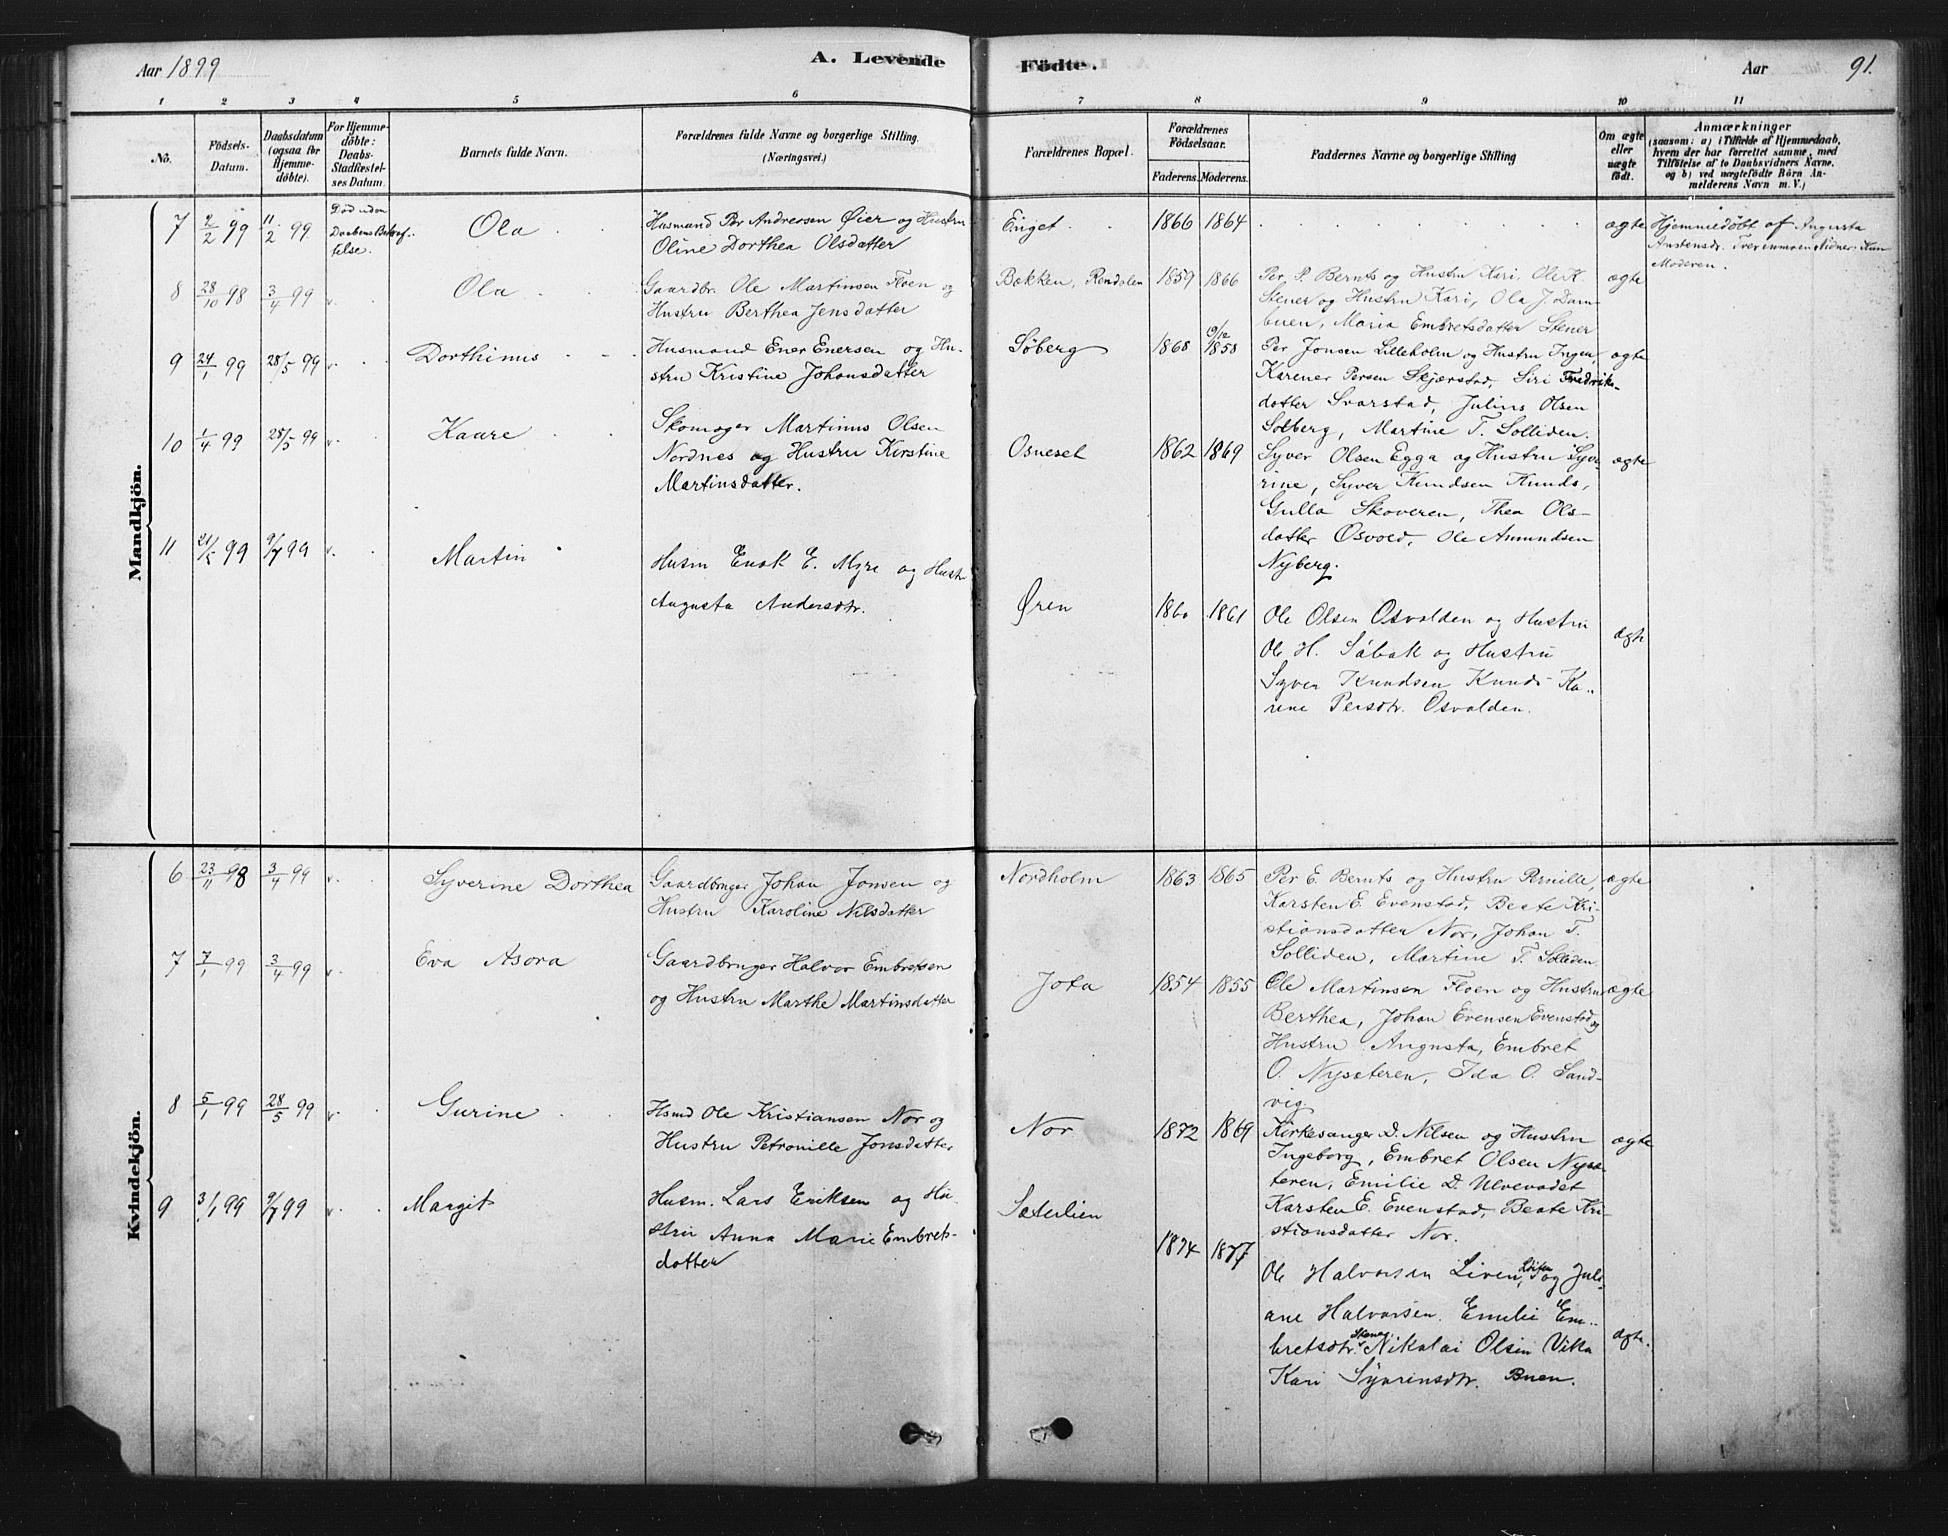 Aar 1899
A. Levende
Födte.
Aar
91.
1 2 3 4 5 6 7 8 9 10 11
No.
Födsels-
Datum.
Daabsdatum
(ogsaa for
Hjemme-
døbte).
For Hjemme-
døbte:
Daabs-
Stadfæstel-
ses Datum.
Barnets fulde Navn.
Forældrenes fulde Navne og borgerlige Stilling.
(Næringsvei.)
Forældrenes Bopæl.
Forældrenes
Födselsaar.
Faderens. Moderens.
Faddernes Navne og borgerlige Stilling
Om ægte
eller
uægte
født.
Anmærkninger
(saasom: a) i Tilfælde af Hjemmedaab,
hvem der har forrettet samme, med
Tilföielse af to Daabsvidners Navne.
og b) ved uægtefödte Börn An-
melderens Navn m. V.)
Mandkjön.
7 2/2 99 11/2 99
Død uden
Daabens Bekræf-
telse.
Ola
Husmand Per Andreasen Øier og Hustru
Oline Dorthea Olsdatter
Enget
1866 1864
ægte
Hjemmedøbt af Augusta
Moderen.
8 28/10 98 3/4 99 v.
Ola
Gaardbr. Ole Martinsen Floen og
Hustru Berthea Jensdatter
Bakken, Rendalen
1859 1866
Per P. Bernts og Hustru Kari, Ole K.
Stener og Hustru Kari, Ola J. Dam-
buen, Maria Embretsdatter Stener
ægte
9 24/1 99 28/5 99 v.
Dorthinus
Husmand Ener Enersen og Hu-
stru Kristine Johansdatter
Søberg
1868 19/12 1858
Per Jonsen Lilleholm og Hustru Ingen
Karener Persen Skjærstad, Siri Fredriks-
datter Svarstad, Julius Olsen
Solberg, Martine T. Solliden.
ægte
10 1/4 99 28/5 99 v.
Kaare
Skomager Martinus Olsen
Nordnes og Hustru Kirstine
Martinsdatter.
Osneset
1862 1869
Syver Olsen Egga og Hustru Syve-
rine, Syver Knudsen Knuds,
Gulla Skoveren, Thea Ols-
datter Osvold, Ole Amundsen
Nyberg.
ægte
11 21/5 99 9/7 99 v.
Martin
Husm Enok E. Myre og Hustr
Augusta Andersdtr.
Øren
1860 1861
Ole Olsen Osvalden og Hustru
Ole H. Søbak og Hustru
Syver Knudsen Knuds Ka-
rine Persdtr. Osvalden.
ægte
Kvindekjön.
6 23/11 98 3/4 99 v.
Syverine Dorthea
Gaardbruger Johan Jonsen og
Hustru Karoline Nilsdatter
Nordholm
1863 1865
Per E. Bernts og Hustru Pernille,
Karsten E. Evenstad, Beate Kri-
stiansdatter Nor, Johan T.
Solliden, Martine T. Solliden
ægte
7 7/1 99 3/4 99 v.
Eva Asora
Gaardbruger Halvor Embretsen
og Hustru Marthe Martinsdatter
Jota
1854 1855
Ole Martinsen Floen og Hustru
Berthea, Johan Evensen Evenstad og
Hustru Augusta, Embret
O. Nysæteren, Ida O. Sand-
vig
ægte
8 5/1 99 28/5 99 v.
Gurine
Hsmd Ole Kristiansen Nor og
Hustru Petronille Jonsdatter
Nor
1872 1869
Kirkesanger D. Nilsen og Hustru
Ingeborg, Embret Olsen Nysæ-
teren, Emilie D. Ulvevadet
Karsten E. Evenstad, Beate Kri-
stiansdatter Nor.
ægte
9 3/1 99 9/7 99 v.
Margit
Husm. Lars Eriksen og Hu-
stru Anna Marie Embrets-
datter
Sæterlien
1874 1877
Ole Halvorsen Liven, og Juli-
ane Halvorsen. Emelie Em-
bretsdtr. Nikolai Olsen Vika
Kari Syverinsdtr. Buen.
ægte.